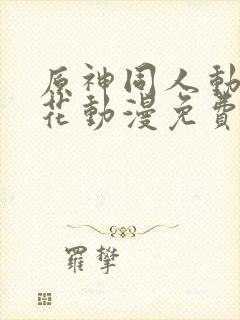 原神同人動
花動漫免費
羅攀